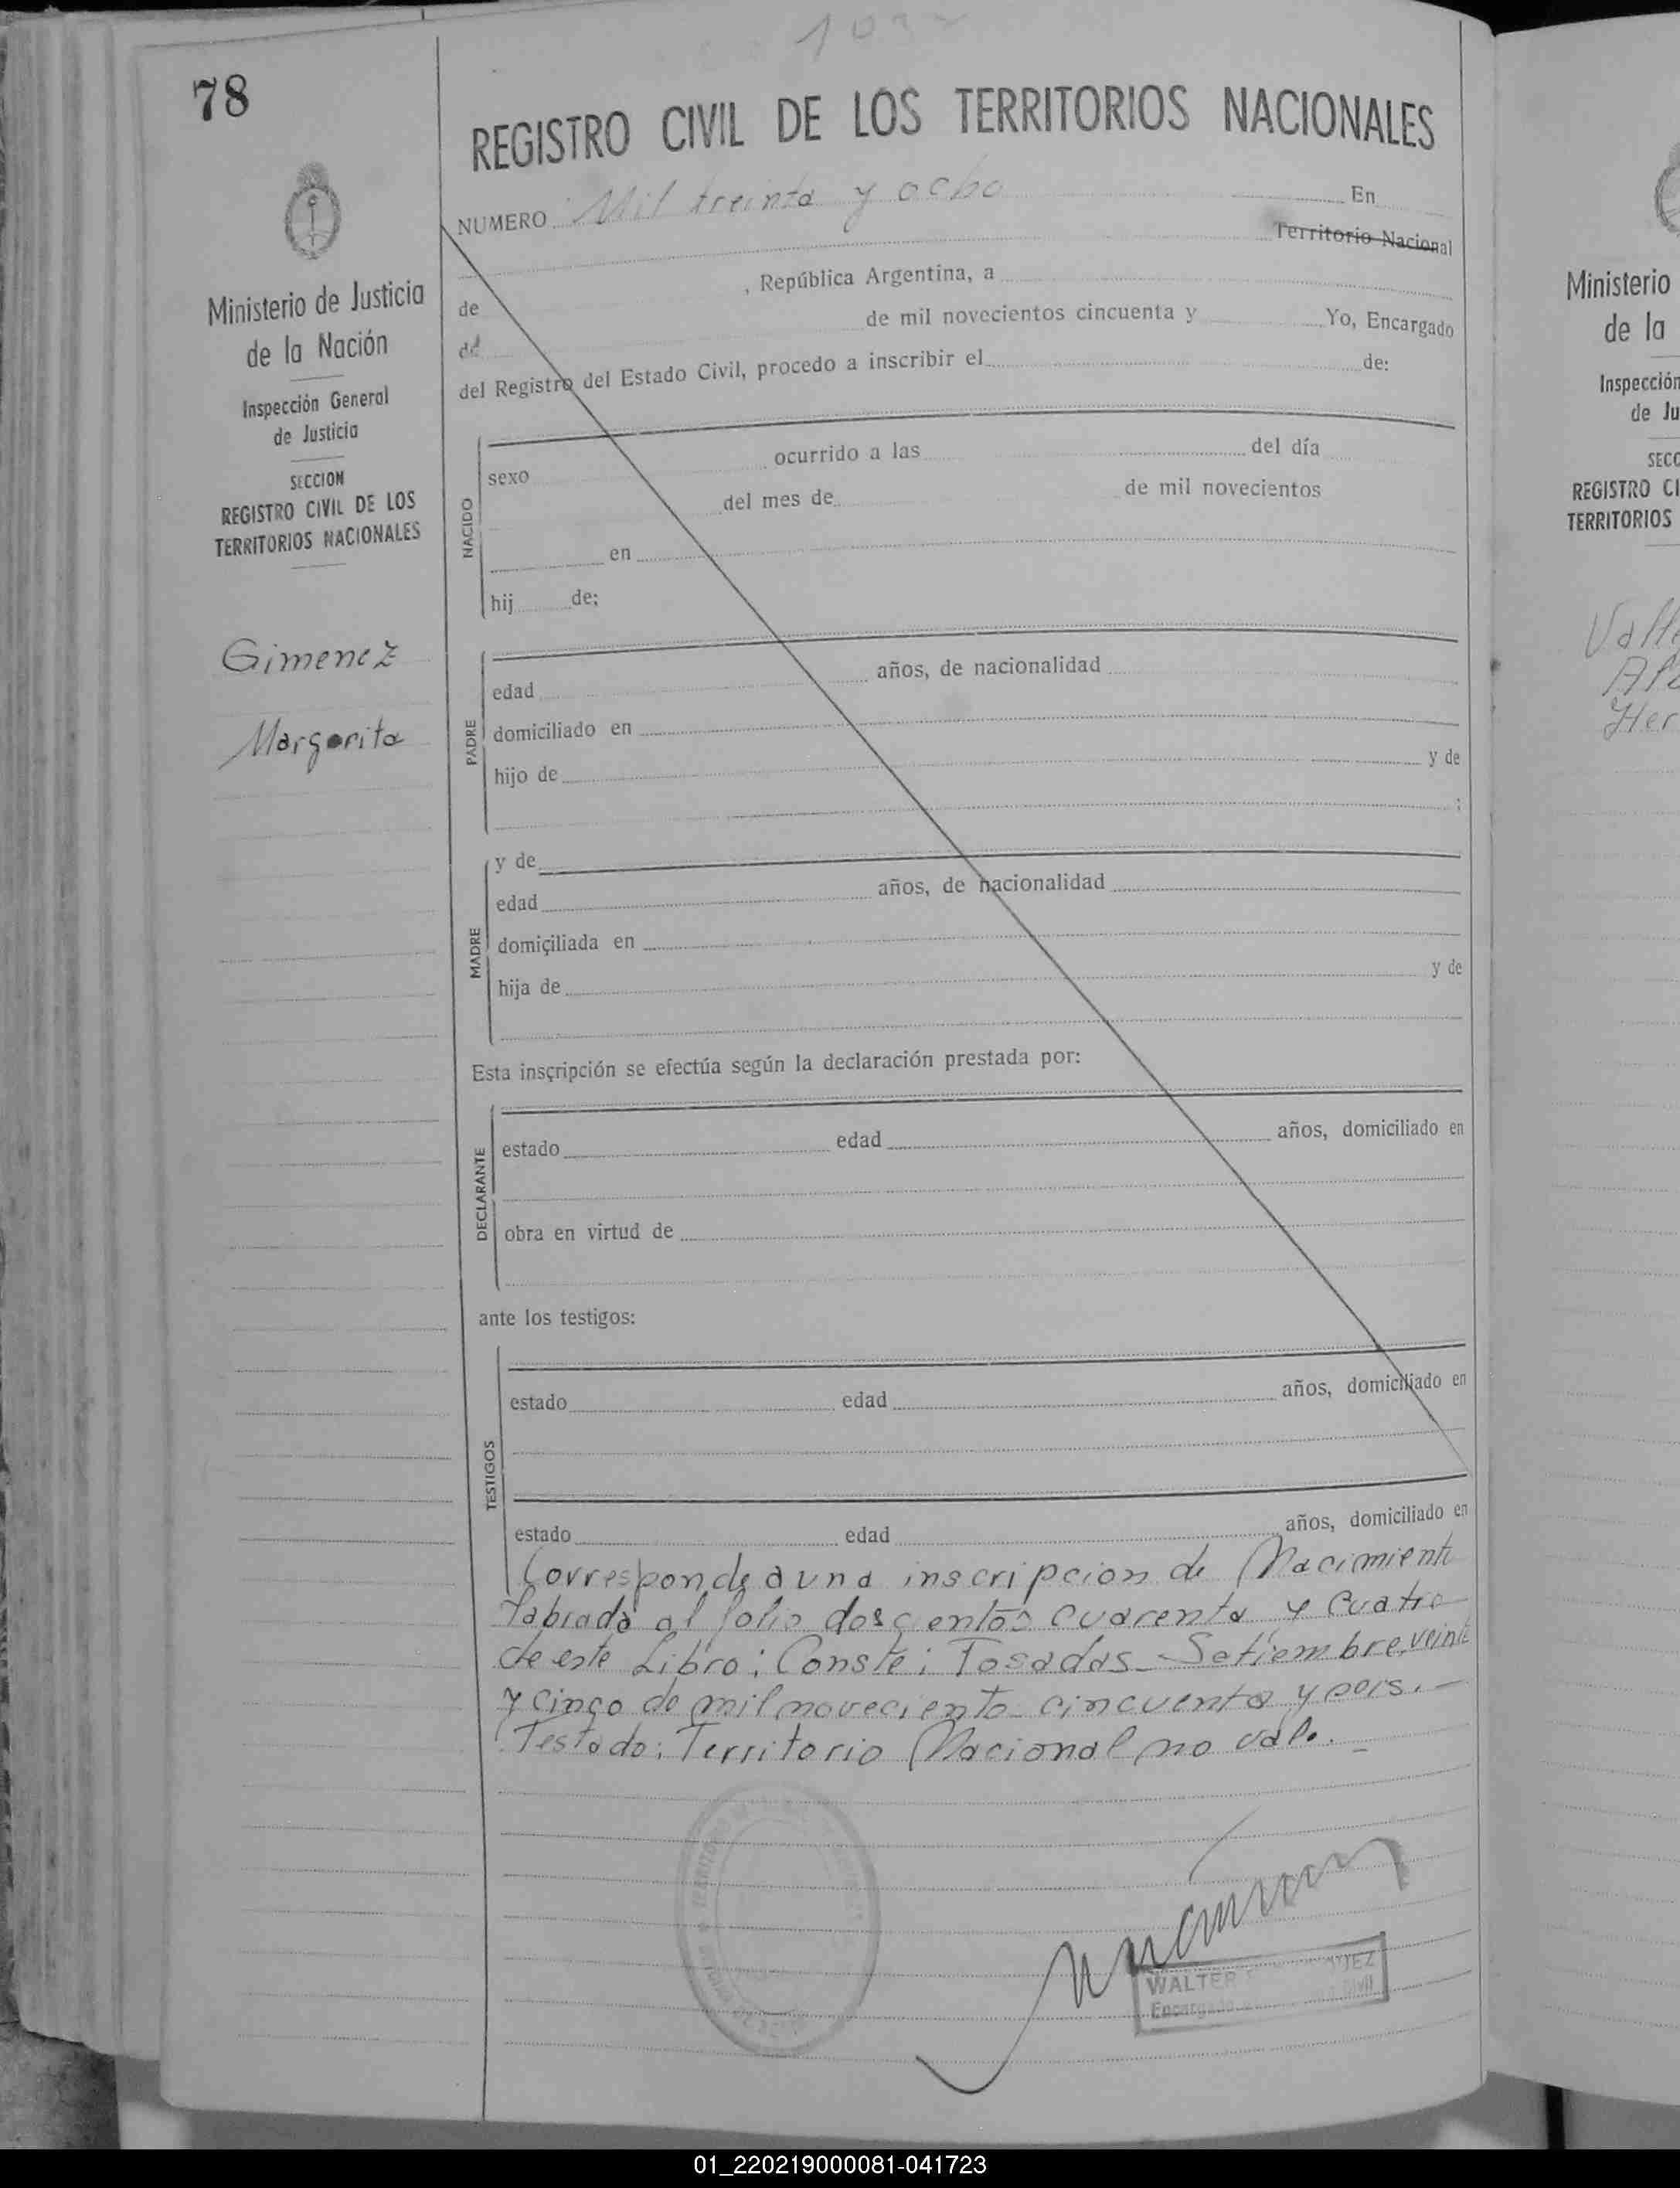 78
REGISTRO CIVIL DE LOS TERRITORIOS NACIONALES
NUMERO Mil treinta y ocho En
Territorio Nacional
de , República Argentina, a
de de mil novecientos cincuenta y Yo, Encargado
del Registro del Estado Civil, procedo a inscribir el de:
Ministerio de Justicia
de la Nación
Inspección General
de Justicia
SECCION
REGISTRO CIVIL DE LOS
TERRITORIOS NACIONALES
Gimenez
Margarita
NACIDO
sexo ocurrido a las del día
del mes de de mil novecientos
en
hij de;
PADRE
edad años, de nacionalidad
domiciliado en
hijo de y de
;
MADRE
y de
edad años, de nacionalidad
domiciliada en
hija de y de
Esta inscripción se efectúa según la declaración prestada por:
DECLARANTE
estado edad años, domiciliado en
obra en virtud de
ante los testigos:
TESTIGOS
estado edad años, domiciliado en
estado edad años, domiciliado en
Corresponde a una inscripcion de Nacimiento
labrada al folio doscientos cuarenta y cuatro
de este Libro; Conste; Posadas Setiembre, veinte
y cinco de mil novecientos cincuenta y seis. -
Testado: Territorio Nacional no vale. -
WALTER
Encargado Civil
Ministerio
de la
Inspección
de Ju
SECC
REGISTRO CI
TERRITORIOS
Her
01_220219000081-041723